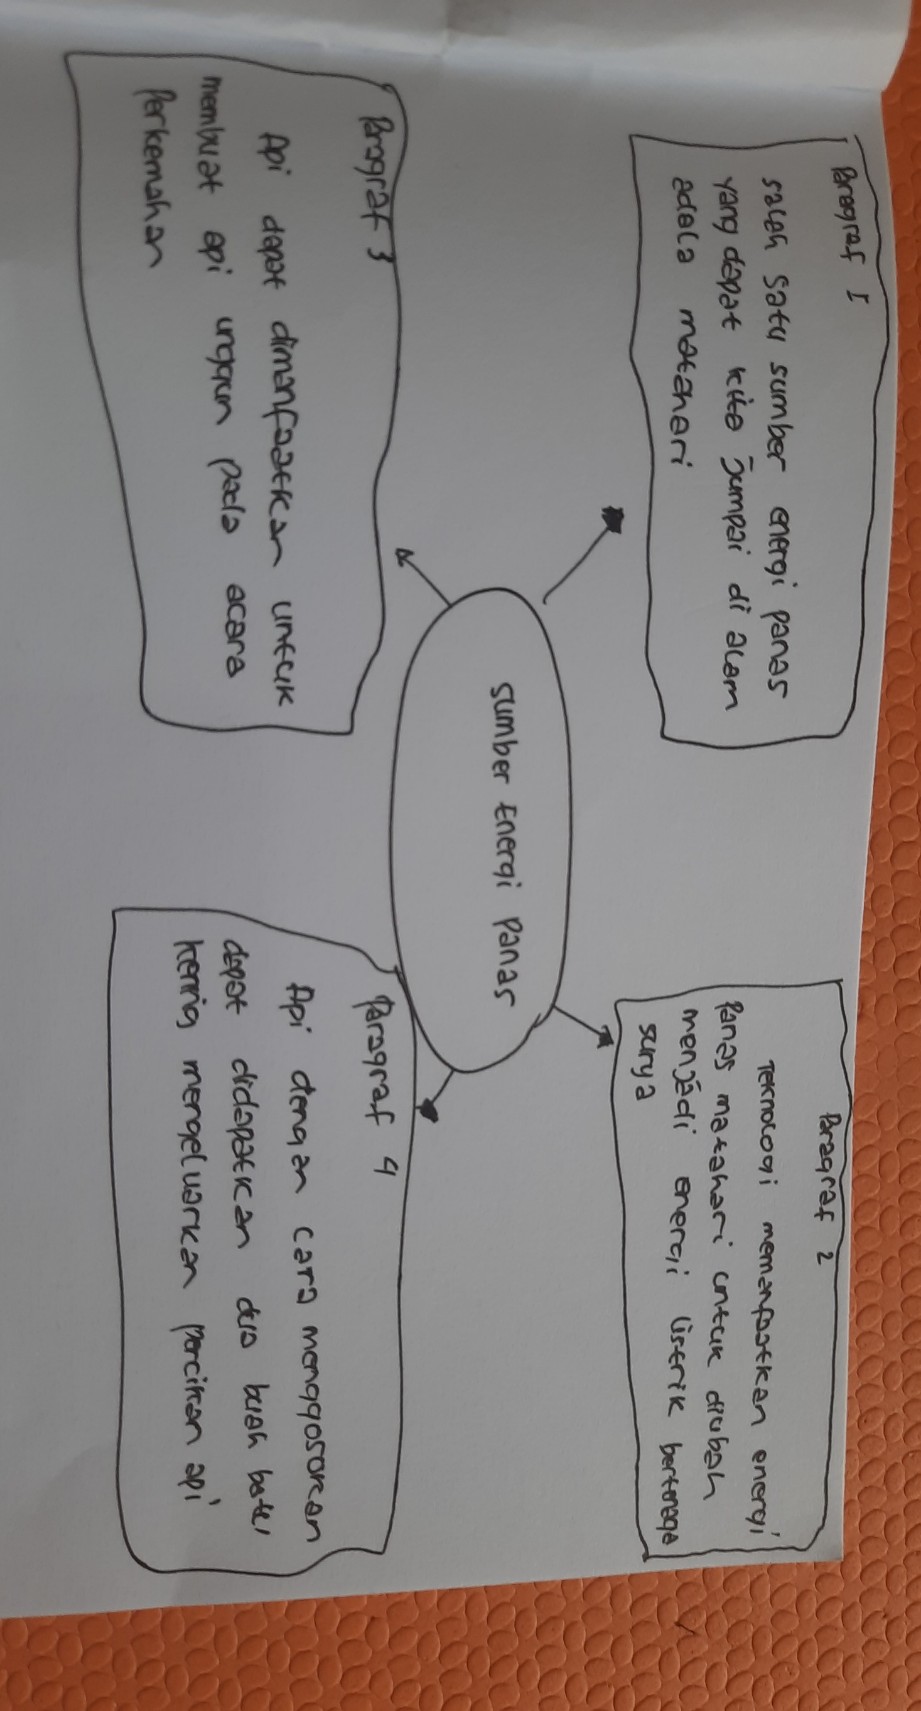 Paragraf 1
salah satu sumber energi panas
yang dapat kita jumpai di alam
adala matahari
Paragraf 2
Teknologi memanfaatkan energi
Panas matahari untuk diubah
menjadi energi listrik bertenaga
surya
sumber Energi panas
Paragraf 3
Api dapat dimanfaatkan untuk
membuat api unggun pada acara
Perkemahan
Paragraf 4
Api dengan cara menggosokan
dapat didapatkan dua buah batu,
kering mengeluarkan percikan api